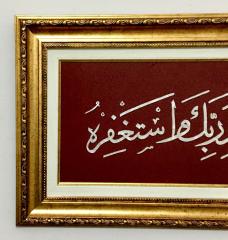 رَبِّكَ وَاسْتَغْفِرْهُ